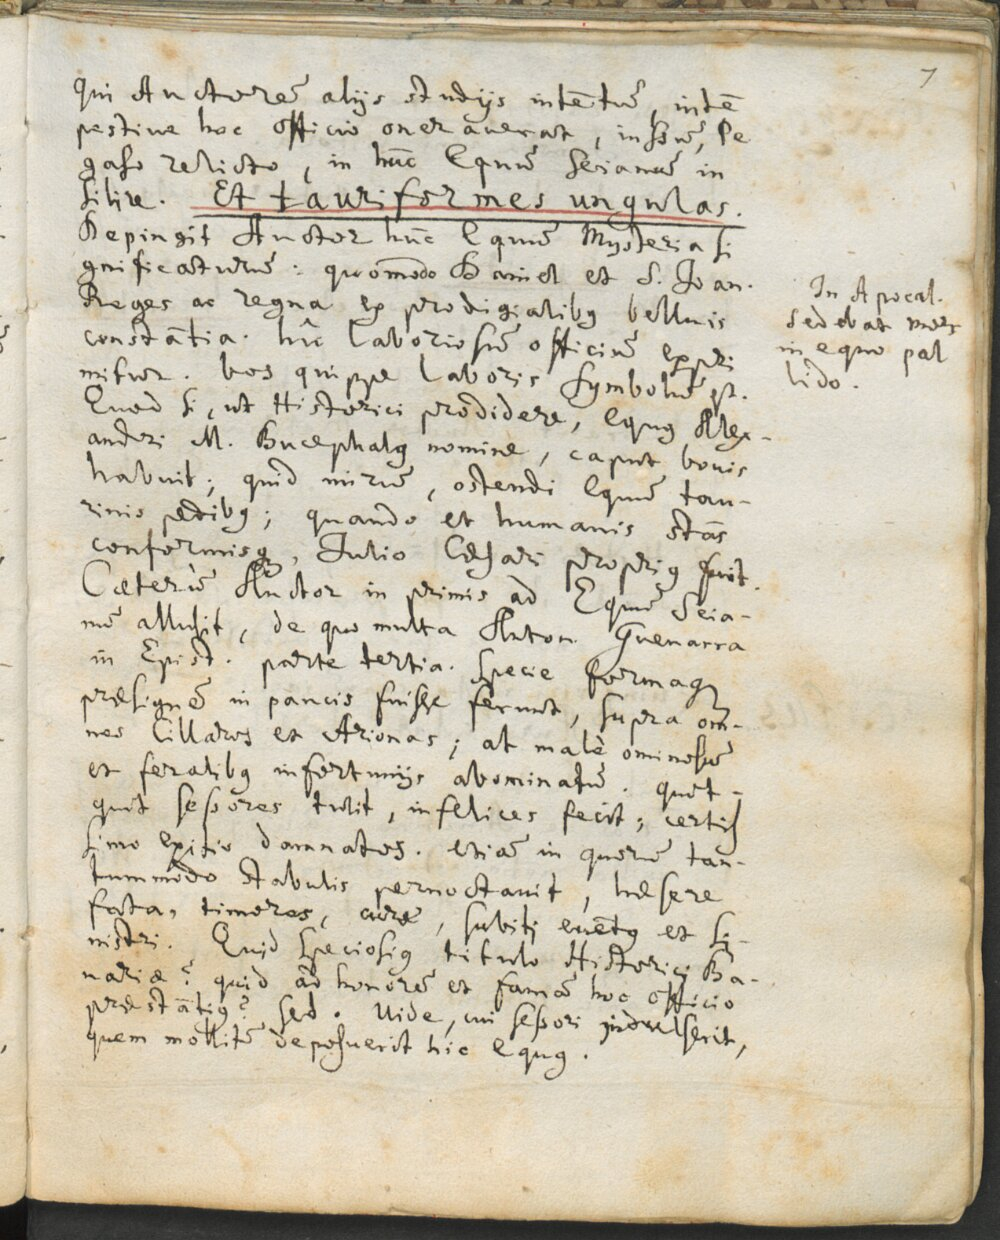 7
qui Auctorē alijs studijs intētū, intē
pestive hoc Officio oneraverat, inssū, Pe
gaso relicto, in hūc Equū Seianū in
silire. Et tauriformes ungulas.
Depingit Auctor hūc Equū Mysteria si
gnificaturū: quōmodo Daniel et S. Joan.
Reges ac regna ex prodigialibꝯ belluis
constātia. hîc Laboriosū officiū expri
mitur. bos quippe Laboris symbolū ꝫt.
Quod si, ut Historici prodidere, Equꝯ Alex-
andri M. Bucephalꝯ nomine, caput bovis
habuit; quid mirū, ostendi Equū tau-
rinis pedibꝯ; quando et humanis stās
conformisqꝫ, Julio Cæsari propriꝯ fuit.
Cæterū Auctor in primis ad Equū Seia-
nū allusit, de quo multa Anton. Guevarra
in Epist. parte tertia. Specie formaqꝫ
præsignē in paucis fuisse ferunt, supra om̄-
nes Cillaros et Arionas; at malè ominosū
et feralibꝯ infortunijs abominatū. quot-
quot sessores tulit, infelices fecit; certis
simo exitio damnatos. etiā in quorū tan-
tummodo stabulis pernoctavit, hæsere
fata, timores, curæ, subiti evētꝯ et si-
nistri. Quid speciosiꝯ titulo Historici Ba-
variæ? quid ad honorē et famā hoc officio
præstātiꝯ? sed. Uide, cui sessori indulserit,
quem mollitē deposuerit hic Equꝯ.
In Apocal.
sedebat mors
in equo pal
lido.